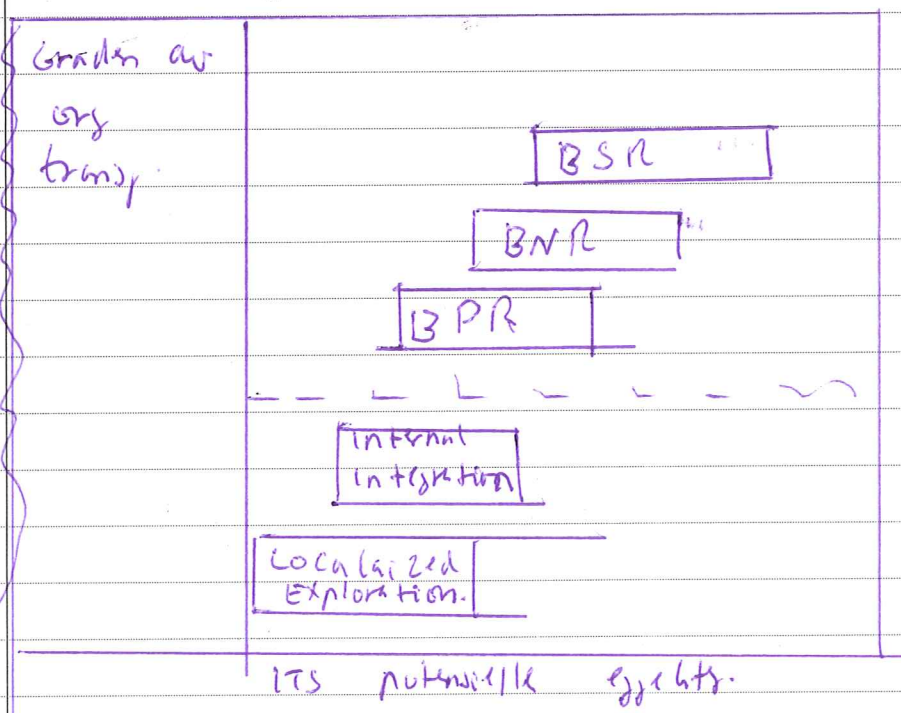 Graden av
org
transf.
BSR
BNR
BPR
internal
integration
Localaized
Exploration.
ITS potensielle effekts.